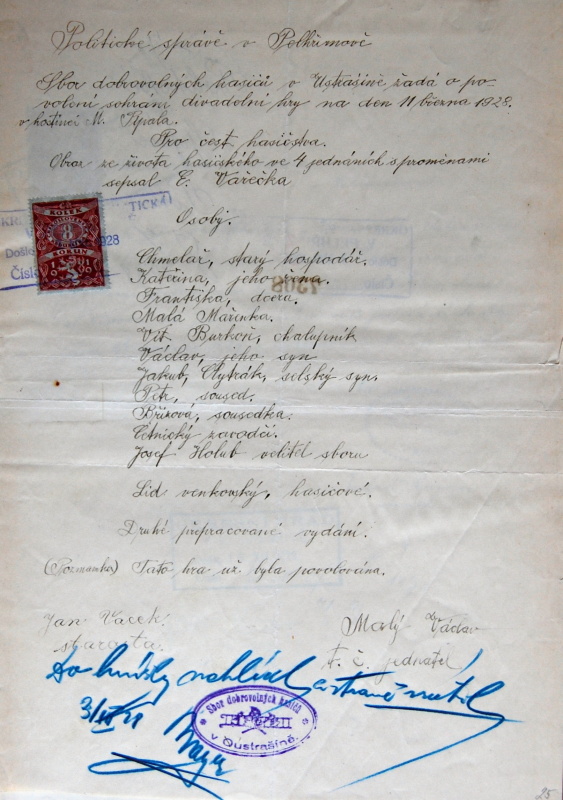 Politické správě v Pelhřimově
Sbor dobrovolných hasičů v Ustrašíně žádá o po-
volení sehrání divadelní hry na den 11 března 1928.
v hostinci M. Típala.
Pro čest hasičstva.
Obraz ze života hasičského ve 4 jednáních s proměnami
sepsal E. Vařečka
Osoby.
Chmelař, starý hospodář.
Kateřina, jeho žena.
Františka, dcera.
Malá Mařenka.
Vít Burkoň, chalupník
Václav, jeho syn
Jakub, Chytrák, selský syn.
Petr, soused.
Břízová, sousedka.
Četnický závodčí.
Josef Holub velitel sboru
Lid venkovský, hasičové.
Druhé přepracované vydání.
(Poznámka) Tato hra už byla povolována.
Jan Vacek.
starosta.
Malý Václav
t. č. jednatel
Do knížky nahlížel a
3/III
Sbor dobrovolných hasičů
v Oustrašíně.
KOLEK
8
KORUN
TICKÁ
Došlo
1928
Číslo
1308
25